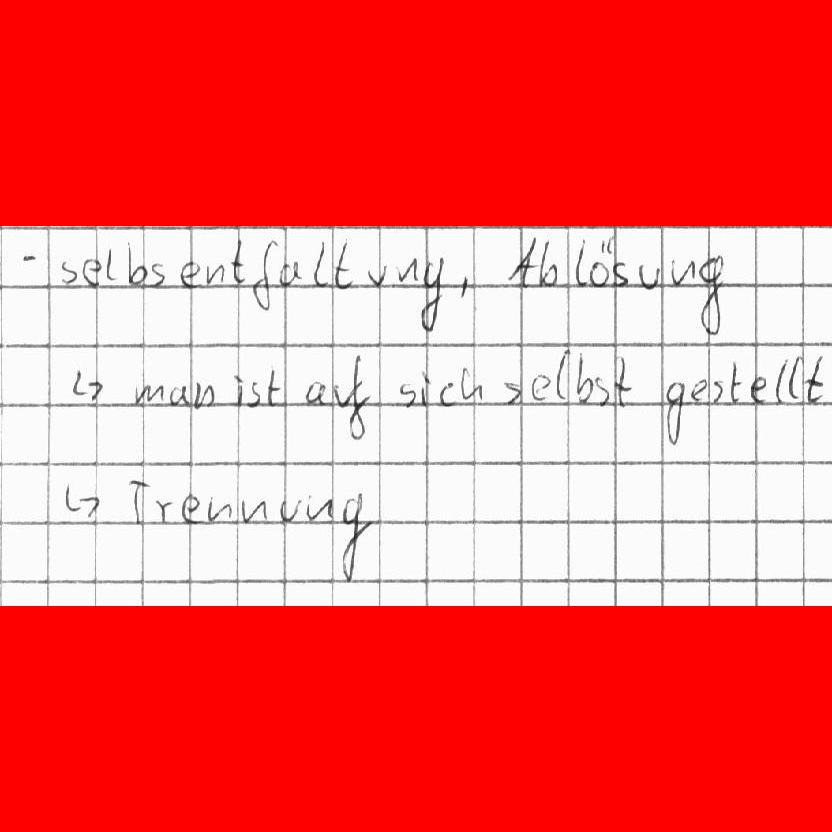 - selbsentfaltung, Ablösung
↳ man ist auf sich selbst gestellt
↳ Trennung